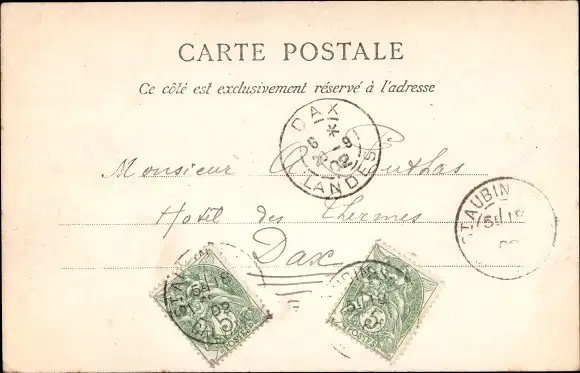 CARTE POSTALE
Ce côté est exclusivement réservé à l'adresse
DAX
LANDES
Monsieur
Hotel des Thermes
Dax
ST AUBIN
5
5
POSTES